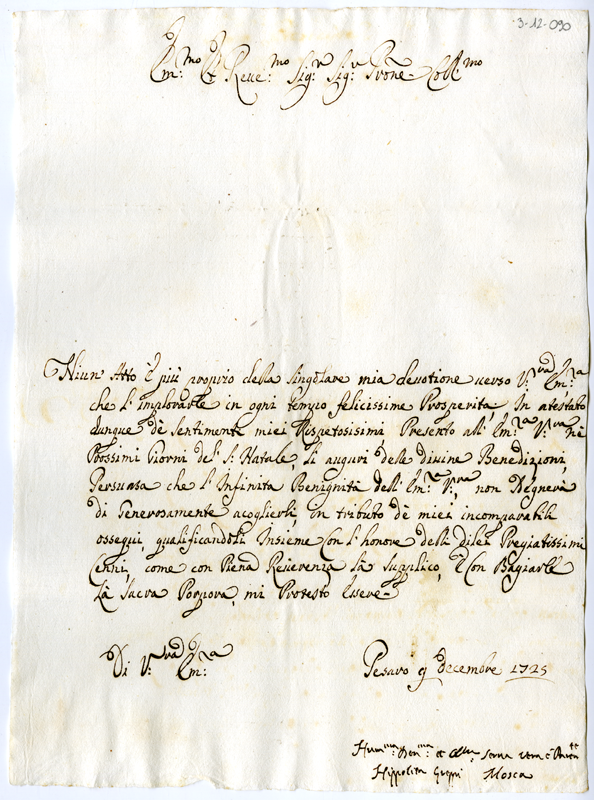 3-12-090
Em:mo E Reue:mo Sig:r Sig:r Prone Coll:mo
Niun' Atto È più proprio della singolare mia deuotione uerso V:ra Em:za
che l'implorarle in ogni tempo felicissime Prosperità, In atestato
dunque dè sentimenti miei Rispetosisimi, Presento all' Em:za V:ra nè
Prossimi Giorni del S: Natale, li auguri dele diuine Benedizioni,
Persuasa che l'Infinita Benignità dell' Em:za V:ra non Degnerà
di Generosamente acoglierli, in tributo dè miei incomparabili
ossequi, qualificandoli Insieme Con l'honore deli dilei Pregiatissimi
Cenni, come con Piena Reuerenza La Supplico, È Con Bagiarle
La Sacra Porpora, mi Protesto Essere
Di V:ra Em:za
Pesaro 9 decembre 1725
Hum:ma Deu:ma et serua uera e
Hippolita Mosca